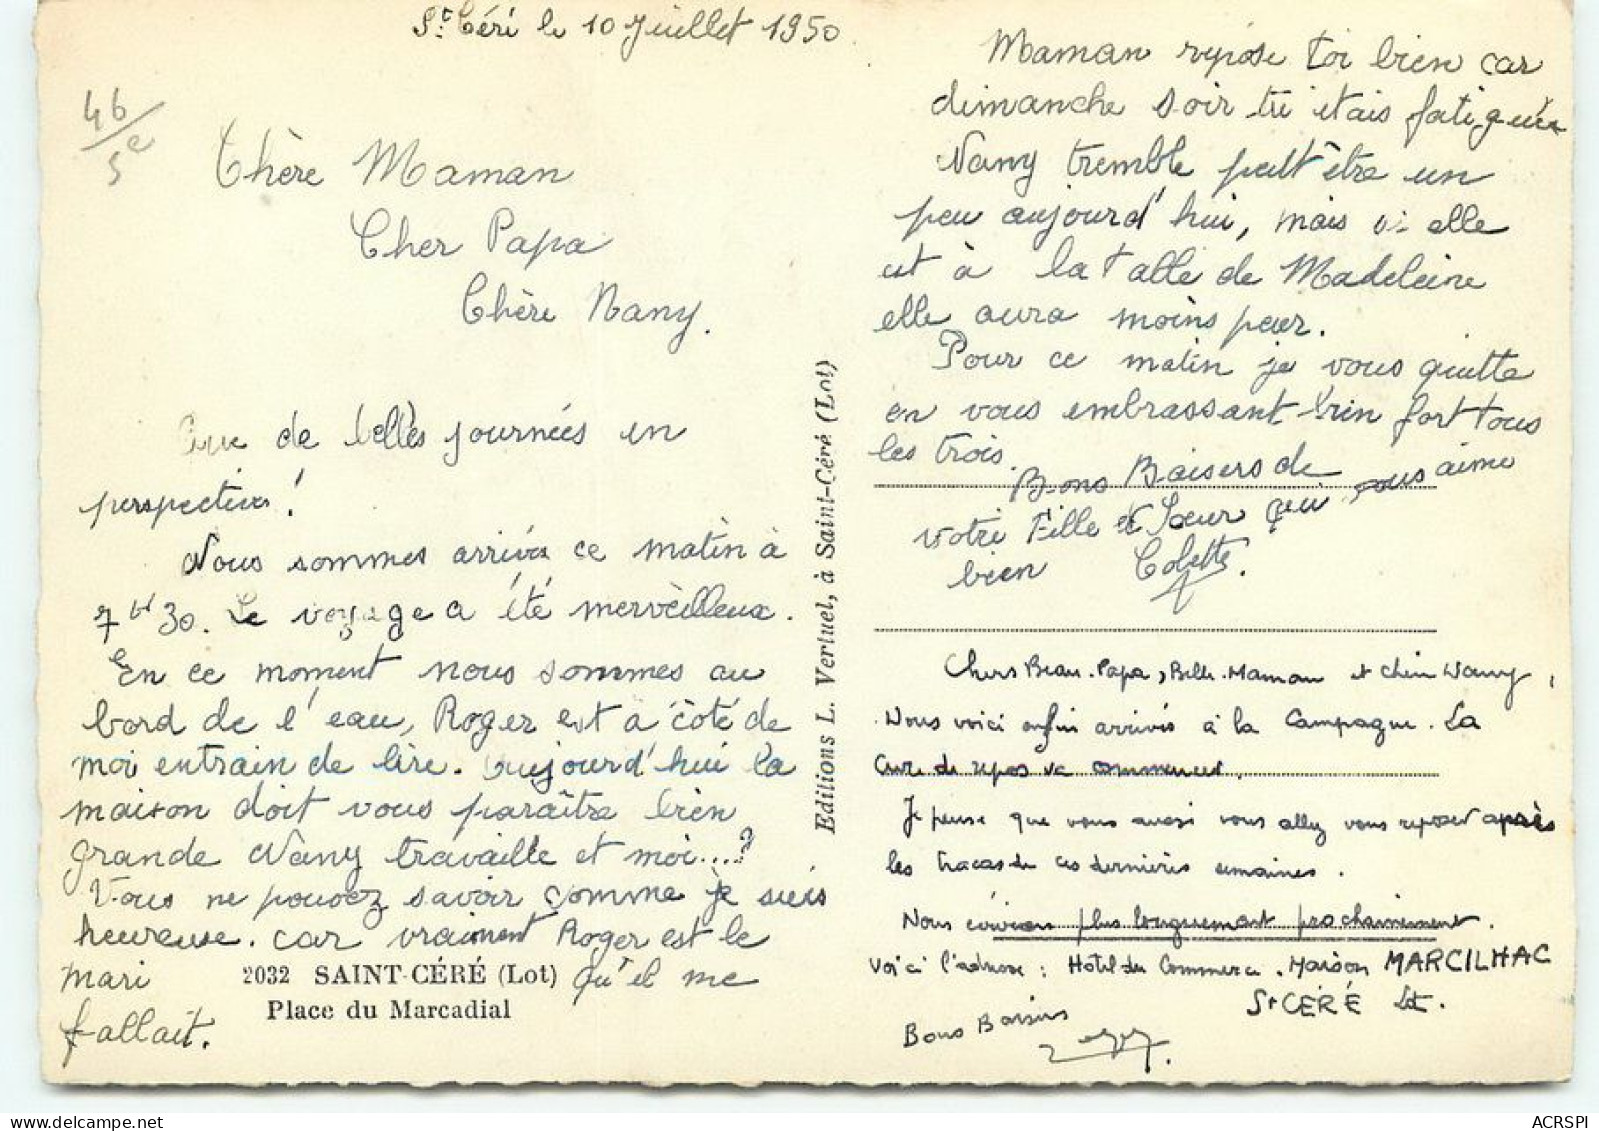 St Céré le 10 Juillet 1950
46
5e
Chère Maman
Cher Papa
Chère Nany.
Que de belles journées en
perspectives!
Nous sommes arrivés ce matin à
7 H 30. Le voyage a été merveilleux.
En ce moment nous sommes au
bord de l'eau, Roger est à côté de
moi entrain de lire. Aujourd'hui la
maison doit vous paraître bien
grande Nany travaille et moi....?
Vous ne pouvez savoir comme je suis
heureuse. car vraiment Roger est le
mari qu'il me
fallait.
2032 SAINT-CÉRÉ (Lot)
Place du Marcadial
Editions L. Vertuel, à Saint-Céré (Lot)
Maman repose toi bien car
dimanche soir tu étais fatiguée
Nany tremble peut être un
peu aujourd'hui, mais si elle
est à la talle de Madeleine
elle aura moins peur.
Pour ce matin je vous quitte
en vous embrassant bien fort tous
les trois.
Bons Baisers de
votre Fille et Sœur qui vous aime
bien Colette.
Chers Beau-Papa, Belle-Maman et chère Nany,
Nous voici enfin arrivés à la Campagne. La
Cure de repos va commencer.
Je pense que vous aussi vous allez vous reposer après
les tracas de ces dernières semaines.
Nous écrirons plus longuement prochainement.
Voici l'adresse : Hôtel du Commerce. Maison MARCILHAC
St CÉRÉ Lot.
Bons Baisers
Roger.
ACRSPI